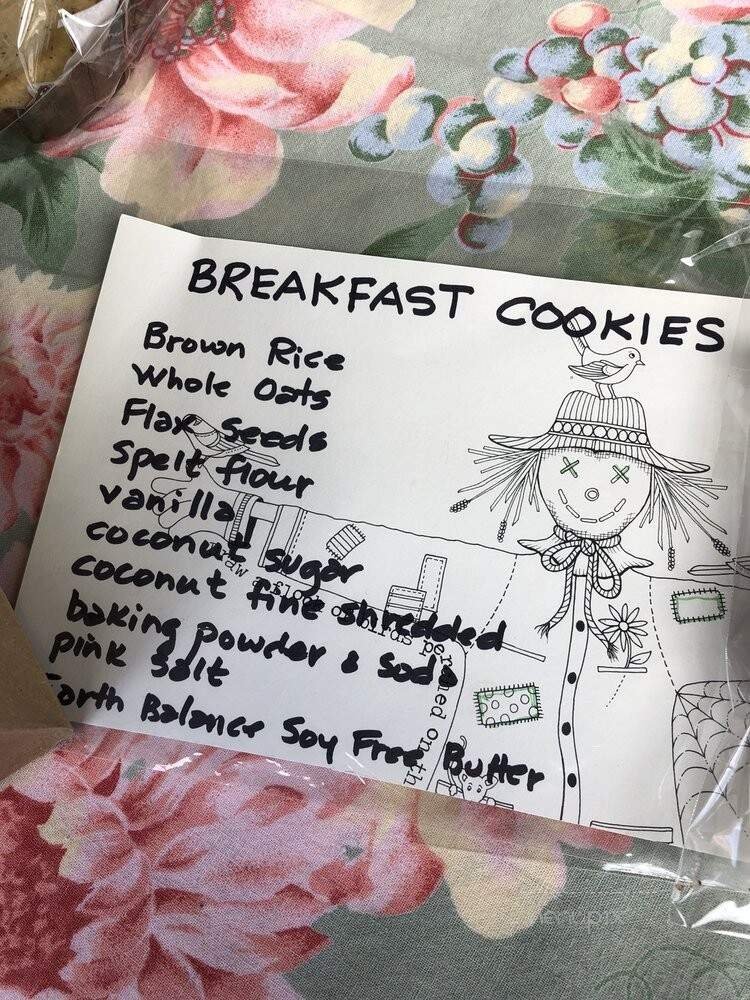 BREAKFAST COOKIES
Brown Rice
Whole Oats
Flax Seeds
Spelt flour
vanilla
coconut sugar
coconut fine shredded
baking powder & soda
pink salt
Earth Balance Soy Free Butter